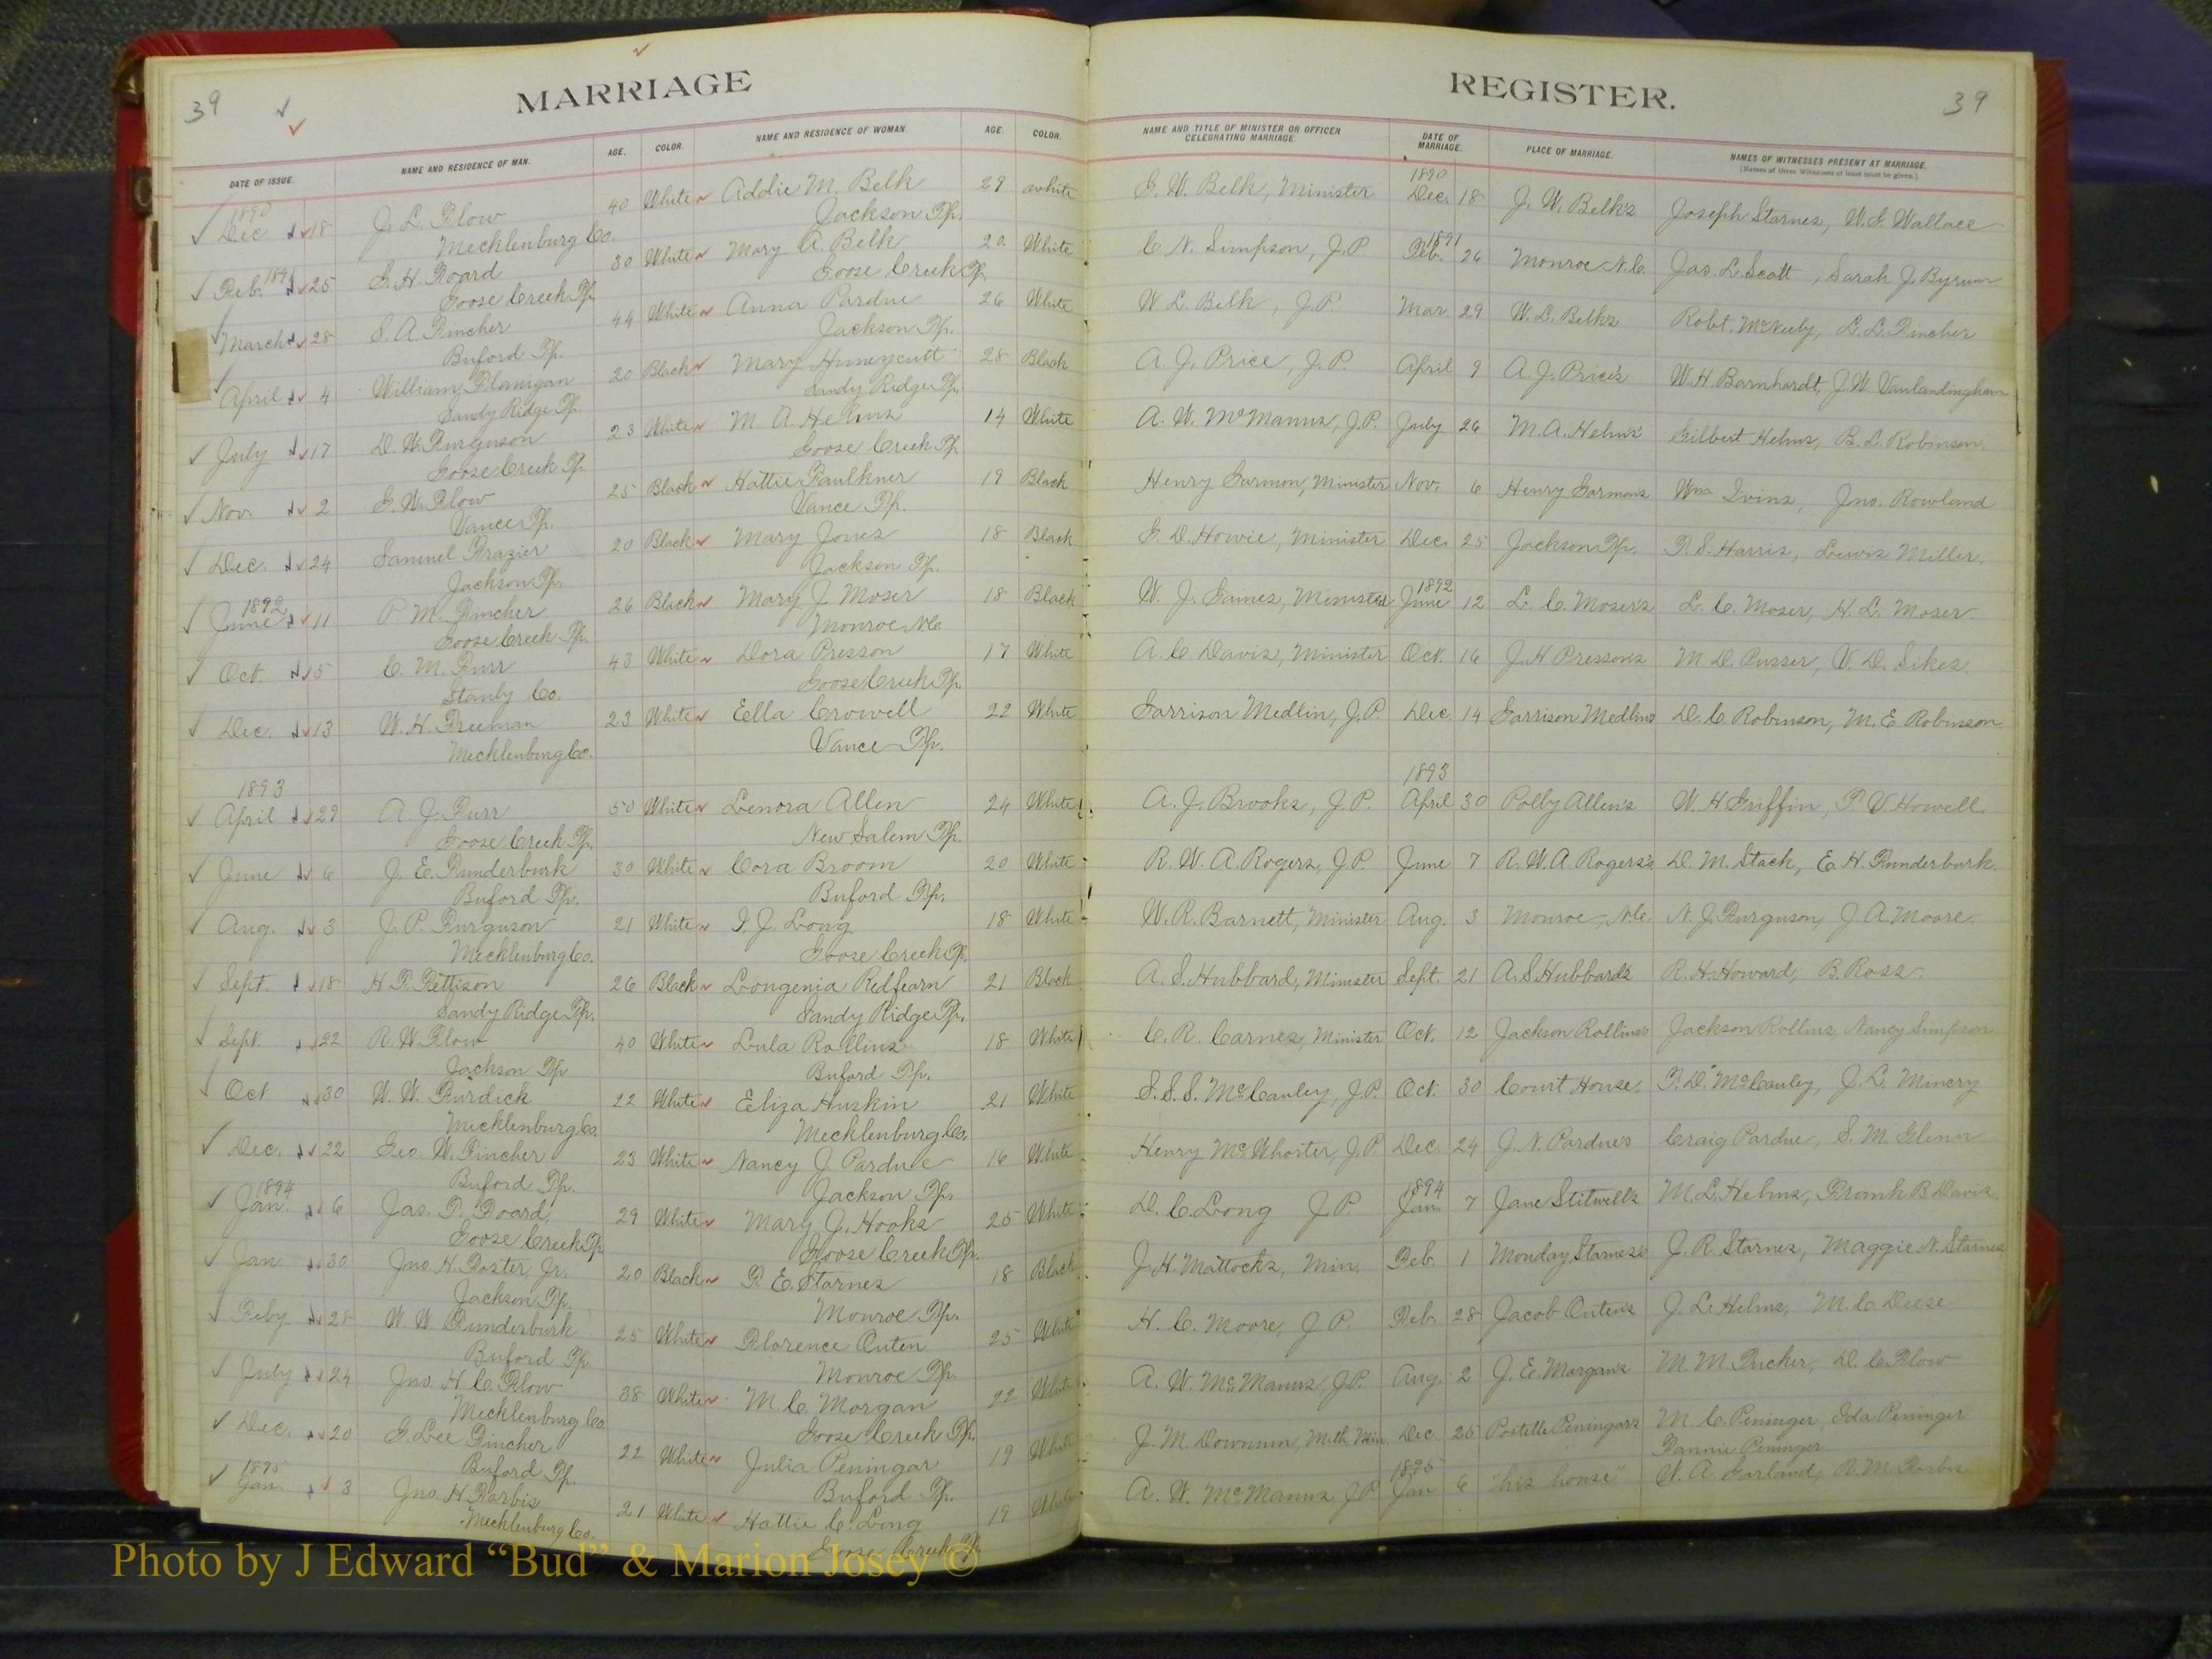 39
MARRIAGE
REGISTER.
39
DATE OF ISSUE. NAME AND RESIDENCE OF MAN. AGE. COLOR. NAME AND RESIDENCE OF WOMAN. AGE. COLOR. NAME AND TITLE OF MINISTER OR OFFICER CELEBRATING MARRIAGE. DATE OF MARRIAGE. PLACE OF MARRIAGE. NAMES OF WITNESSES PRESENT AT MARRIAGE.
[Names of three Witnesses at least must be given.]
1890 1890
Dec. 18 J. L. Flow 40 White Addie M. Belk 29 white G. W. Belk, Minister Dec. 18 J. W. Belk's Joseph Starnes, W. G. Wallace
Mecklenburg Co. Jackson Tp.
1891 1891
Feb. 25 G. H. Foard 30 White Mary A. Belk 20 White C. N. Simpson, J.P. Feb. 26 Monroe N.C. Jas. L. Scott, Sarah J. Byrum
Goose Creek Tp. Goose Creek Tp.
March 28 S. A. Fincher 44 White Anna Pardue 26 White W. L. Belk, J.P. Mar 29 W. L. Belk's Robt. McNeely, L. L. Fincher
Buford Tp. Jackson Tp.
April 4 William Flanigan 20 Black Mary Huneycutt 28 Black A. J. Price, J.P. April 9 A. J. Price's W. H. Barnhardt, J. W. Vanlandingham
Sandy Ridge Tp. Sandy Ridge Tp.
July 17 D. W. Furguson 23 White M. A. Helms 14 White A. W. McManus, J.P. July 26 M. A. Helms' Gilbert Helms, B. L. Robinson
Goose Creek Tp. Goose Creek Tp.
Nov. 2 G. W. Flow 25 Black Hattie Faulkner 19 Black Henry Garmon, Minister Nov. 6 Henry Garmon's Wm Ivins, Jno. Rowland
Vance Tp. Vance Tp.
Dec. 24 Samuel Frazier 20 Black Mary Jones 18 Black G. D. Howie, Minister Dec. 25 Jackson Tp. F. S. Harris, Lewis Miller.
Jackson Tp. Jackson Tp.
1892 1892
June 11 P. M. Fincher 26 Black Mary J. Moser 18 Black W. J. Gaines, Minister June 12 L. C. Moser's L. C. Moser, H. L. Moser
Goose Creek Tp. Monroe N.C.
Oct. 5 C. M. Furr 43 White Dora Presson 17 White A. C. Davis, Minister Oct. 16 J. H. Presson's M. D. Pusser, V. D. Sikes
Stanly Co. Goose Creek Tp.
Dec. 13 W. H. Freeman 23 White Ella Crowell 22 White Garrison Medlin, J.P. Dec. 14 Garrison Medlins D. C. Robinson, M. E. Robinson
Mecklenburg Co. Vance Tp.
1893 1893
April 29 A. J. Furr 50 White Lenora Allen 24 White A. J. Brooks, J.P. April 30 Polly Allen's W. H. Griffin, P. V. Howell
Goose Creek Tp. New Salem Tp.
June 6 J. E. Funderburk 30 White Cora Broom 20 White R. W. A. Rogers, J.P. June 7 R. W. A. Rogers's D. M. Stack, E. H. Funderburk.
Buford Tp. Buford Tp.
Aug. 3 J. P. Furguson 21 White I. J. Long 18 White W. R. Barnett, Minister Aug. 3 Monroe, N.C. N. J. Furguson, J. A. Moore.
Mecklenburg Co. Goose Creek Tp.
Sept. 18 H. P. Fettison 26 Black Longenia Redfearn 21 Black A. S. Hubbard, Minister Sept. 21 A. S. Hubbard's R. H. Howard, B. Ross
Sandy Ridge Tp. Sandy Ridge Tp.
Sept. 22 R. W. Flow 40 White Lula Rollins 18 White C. R. Carnes, Minister Oct. 12 Jackson Rollins's Jackson Rollins, Nancy Simpson
Jackson Tp Buford Tp.
Oct 30 W. W. Furdick 22 White Eliza Huskin 21 White S. S. S. McCauley, J.P. Oct. 30 Court House. P. D. McCauley, J. L. Mincey
Mecklenburg Co. Mecklenburg Co.
Dec. 22 Geo. W. Fincher 23 White Nancy J. Pardue 16 White Henry McWhorter, J.P. Dec. 24 J. N. Pardue's Craig Pardue, S. M. Glenn
Buford Tp. Jackson Tp.
1894 1894
Jan. 6 Jas. P. Foard 29 White Mary J. Hooks 25 White D. C. Long J P Jan. 7 Jane Stitwells M. L. Helms, Frank B. Davis
Goose Creek Tp Goose Creek Tp.
Jan. 30 Jno. H. Foster, Jr. 20 Black P. E. Starnes 18 Black J. H. Mattocks, Min. Feb. 1 Monday Starnes's J. R. Starnes, Maggie N. Starnes
Jackson Tp. Monroe Tp.
Feby 28 W W Funderburk 25 White Florence Outen 25 White H. C. Moore, J.P. Feb. 28 Jacob Outen's J. L. Helms, M. C. Deese
Buford Tp Monroe Tp.
July 24 Jno. H. C. Flow 38 White M. C. Morgan 22 White A. W. McManus, J.P. Aug. 2 J. E. Morgan's M. M. Tucker, D. C. Flow
Mecklenburg Co Goose Creek Tp.
Dec. 20 G. Lee Fincher 22 White Julia Peningar 19 White J. M. Downum, Meth. Min. Dec. 25 Postelle Peningar's M. C. Peninger, Ida Peninger
Buford Tp. Buford Tp. Fannie Peninger
1895 1895
Jan. 3 Jno. H. Forbis 21 White Hattie C. Long 19 White A. W. McManus J.P. Jan 6 "his house" W. A. Garland, R. M. Forbis
Mecklenburg Co. Goose Creek Tp
Photo by J Edward “Bud” & Marion Josey ©